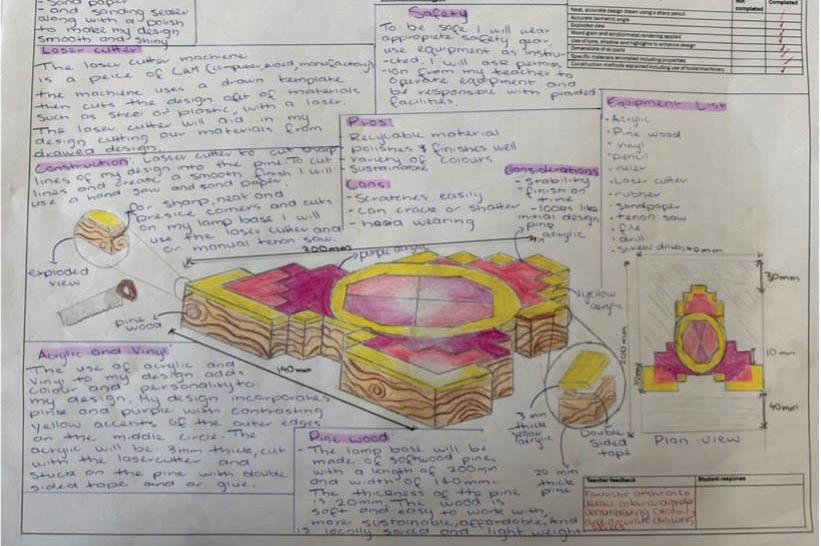 - Sand paper
- and sanding sealer
along with a polish
to make my design
smooth and shiny
Laser cutter
The laser cutter machiene
is a peice of CAM (computer, aided, manufactory)
the machiene uses a drawn template
then cuts the design out of materials
such as steel or plastic, with a laser.
The laser cutter will aid in my
design cutting our materials from
drawed design.
Safety
To be safe I will wear
appropriate safety gear,
use equipment as instru-
-cted, I will ask permiss
-ion from my teacher to
operate equiptment and
be responsible with provided
facilities.
Not
completed
Completed
Neat, accurate design drawn using a sharp pencil
Accurate isometric angle
Exploded view
Wood grain and acrylic/metal rendering applied
Use of tone, shadow and highlights to enhance design
Dimensions of all parts
Specific materials annotated including properties
Construction methods explained including use of tools/machinery
Construction: Lasser cutter to cut sharp
lines of my design into the pine. To cut
lines and create a smooth finish I will
use a hand saw and sand paper.
for sharp, neat and
presice corners and cuts
on my lamp base I will
use the laser cutter and
or manual tenon saw.
Pros:
Recyclable material
polishes & finishes well
variety of colours
sustainable
Cons:
- Scratches easily
- can crack or shatter
- hard wearing
Considerations
- Stability
- finish on
time
- looks like
initial design
pink
acrylic
Equipment List
• Acrylic
• Pine wood
• vinyl
• pencil
• ruler
• Laser cutter
• rubber
• sandpaper
• tenon saw
• file
• drill
• screw driver
exploded
view
200mm
purple acrylic
yellow
acrylic
pine
wood
140mm
40mm
30mm
200 mm
10 mm
30mm
40mm
Plan view
Acrylic and Vinyl
The use of acrylic and
Vinyl to my design adds
colour and personality to
my design. My design incorporates
pink and purple with contrasting
yellow accents of the outer edges
on the middle circle. The
acrylic will be 3mm thick, cut
with the lasercutter and
stuck on the pine with double
sided tape and or glue.
3 mm
thick
yellow
acrylic
Double
Sided
tape
20 mm
thick
pine
Pine wood:
- The lamp base will be
made of softwood pine,
with a length of 200mm
and width of 140mm.
The thickness of the pine
is 20mm. The wood is
soft and easy to work with,
more sustainable, affordable, And
is locally sourced and light weight
Teacher feedback
Student response
Fantastic attention to
detail
creativity
and accurate drawing